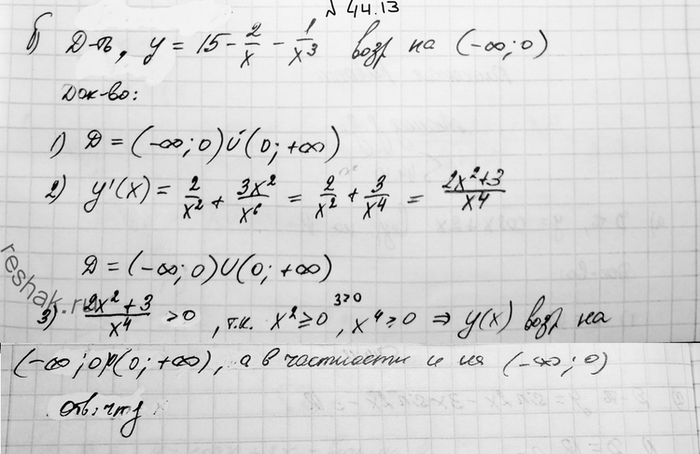 № 44.13
б) Д-ть, y = 15 - 2/x - 1/x³ возр на (-∞; 0)
Док-во:
1) D = (-∞; 0) ∪ (0; +∞)
2) y'(x) = 2/x² + 3x²/x⁶ = 2/x² + 3/x⁴ = 2x²+3/x⁴
D = (-∞; 0) ∪ (0; +∞)
3) 2x²+3/x⁴ > 0, т.к. x² ≥ 0, 3>0, x⁴ ≥ 0 ⇒ y(x) возр на
(-∞; 0) (0; +∞), а в частности и на (-∞; 0)
Отв: чтд
reshak.ru